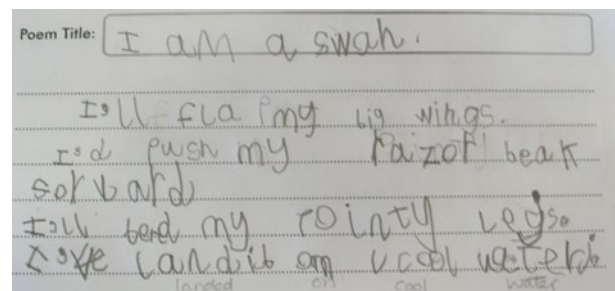 Poem Title: I am a swan.
I'll flap my big wings.
I'd push my raizor beak
forward
I'll bend my pointy legs.
I've landid on cool water
landed on cool water